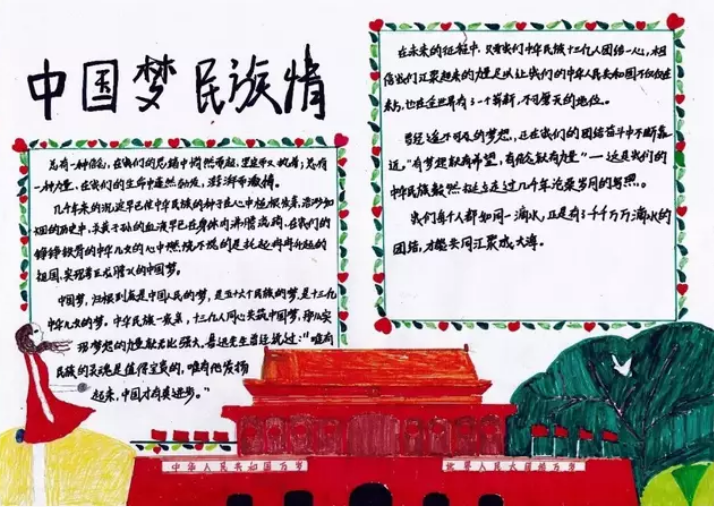 中国梦民族情
总有一种信心，在我们的思绪中悄然而起，坚定而又执着；总有
一种力量，在我们的生命中蓬然勃发，澎湃而激情。
几千年来的沉淀早已使中华民族的种子在心中植根发芽，
的历史中，炎黄子孙的血液早已在身体内沸腾流淌。在我们的
铮铮铁骨的中华儿女的心中燃烧不熄的是托起冉冉升起的
祖国，实现着正龙腾飞的中国梦。
中国梦，归根到底是中国人民的梦，是五十六个民族的梦，是十三亿
中华儿女的梦。中华民族一家亲，十三亿人同心共筑中国梦，那么实
现梦想的力量就无比强大，鲁迅先生曾经说过：“唯有
民族的灵魂是值得宝贵的，唯有他发扬
起来，中国才有真进步。”
在未来的征程中，只要我们中华民族十三亿人团结一心，相
信我们汇聚起来的力量足以让我们的中华人民共和国不仅仅在
东方，也在全世界有了一个崭新、不可撼天的地位。
曾经遥不可及的梦想，正在我们的团结奋斗中不断靠
近，“有梦想就有希望，有信念就有力量”——这是我们的
中华民族毅然挺立走过几千年沧桑岁月的
我们每个人都如同一滴水，正是有了千千万万滴水的
团结，才能共同汇聚成大海。
中华人民共和国万岁
世界人民大团结万岁